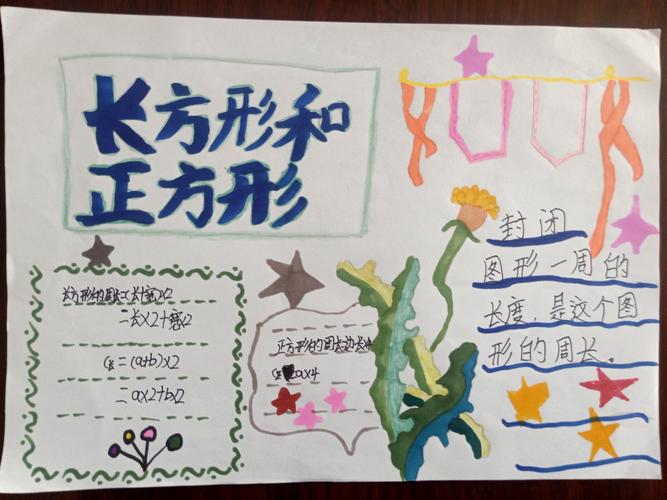 长方形和
正方形
长方形的周长=(长+宽)×2
=长×2+宽×2
C=(a+b)×2
=a×2+b×2
正方形的周长边长
a×4
封闭
图形一周的
长度,是这个图
形的周长。